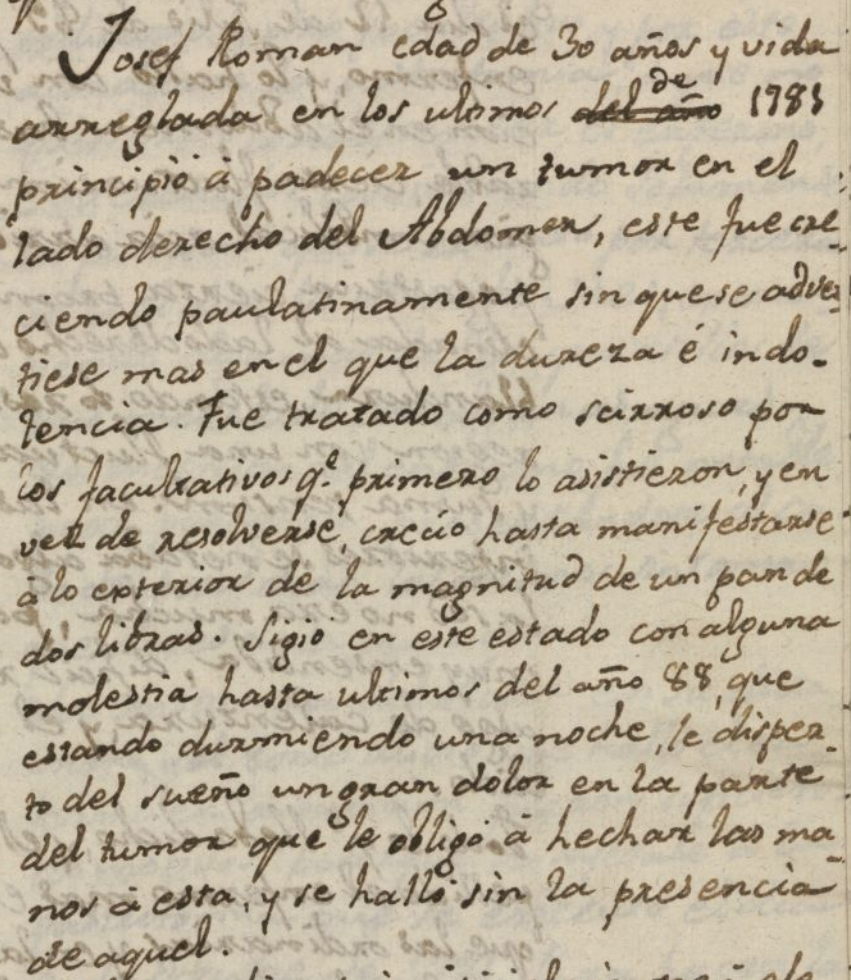 Josef Roman edad de 30 años y vida
arreglada en los ultimos del año de 1785
principió á padecer un tumor en el
lado derecho del Abdomen, este fue cre-
ciendo paulatinamente sin que se adver-
tiese mas en el que la dureza é indo-
lencia. Fue tratado como scirroso por
los facultativos q.e primero lo asistieron, y en
vez de resolverse, creció hasta manifestarse
á lo exterior de la magnitud de un pan de
dos libras. Sigió en este estado con alguna
molestia hasta ultimos del año 88, que
estando durmiendo una noche, le disper-
to del sueño un gran dolor en la parte
del tumor que le obligó á hechar las ma-
nos á esta, y se halló sin la presencia
de aquel.